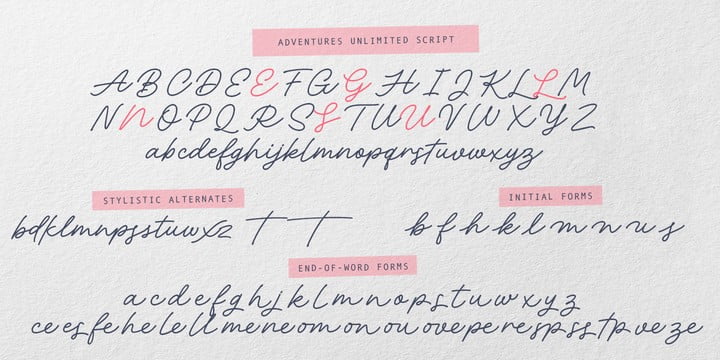 ADVENTURES UNLIMITED SCRIPT
A B C D E E F G G H I J K L L M
N N O P Q R S S T U U V W X Y Z
abcdefghijklmnopqrstuvwxyz
STYLISTIC ALTERNATES
INITIAL FORMS
bdklmnpsstuwxz T T
b f h k l m n u s
END-OF-WORD FORMS
a c d e f g h j k l m n o p s t u w x y z
ce es fe he le ll me ne om on ou ove pe re sp ss tp ve ze